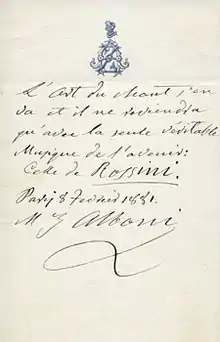 L'Art du Chant s'en
va et il ne reviendra
qu'avec la seule véritable
Musique de l'avenir:
Celle de Rossini.
Paris 8 Février 1881.
M Alboni